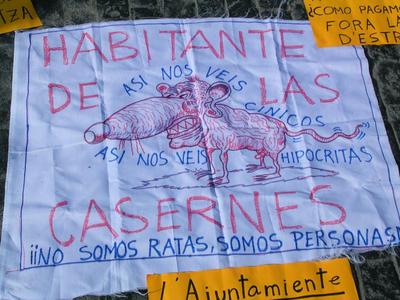 TZA
¿COMO PAGAM
FORA LA
D'ESTR
HABITANTE
DE LAS
ASI NOS VEIS
CINICOS
ASI NOS VEIS HIPOCRITAS
CASERNES
¡¡NO SOMOS RATAS, SOMOS PERSONAS!
L'Ajuntamiente